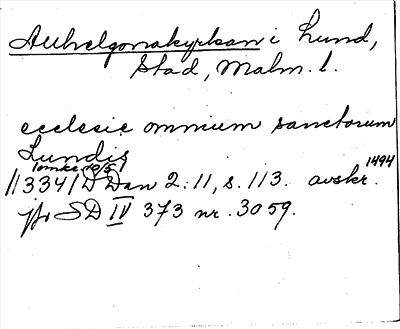 Allhelgonakyrkan i Lund,
Stad, Malm. l.
ecclesie omnium sanctorum
Lundis
1494
//334/ D Dan 2:11, s. 113. avskr.
jfr SD IV 373 nr. 3059.